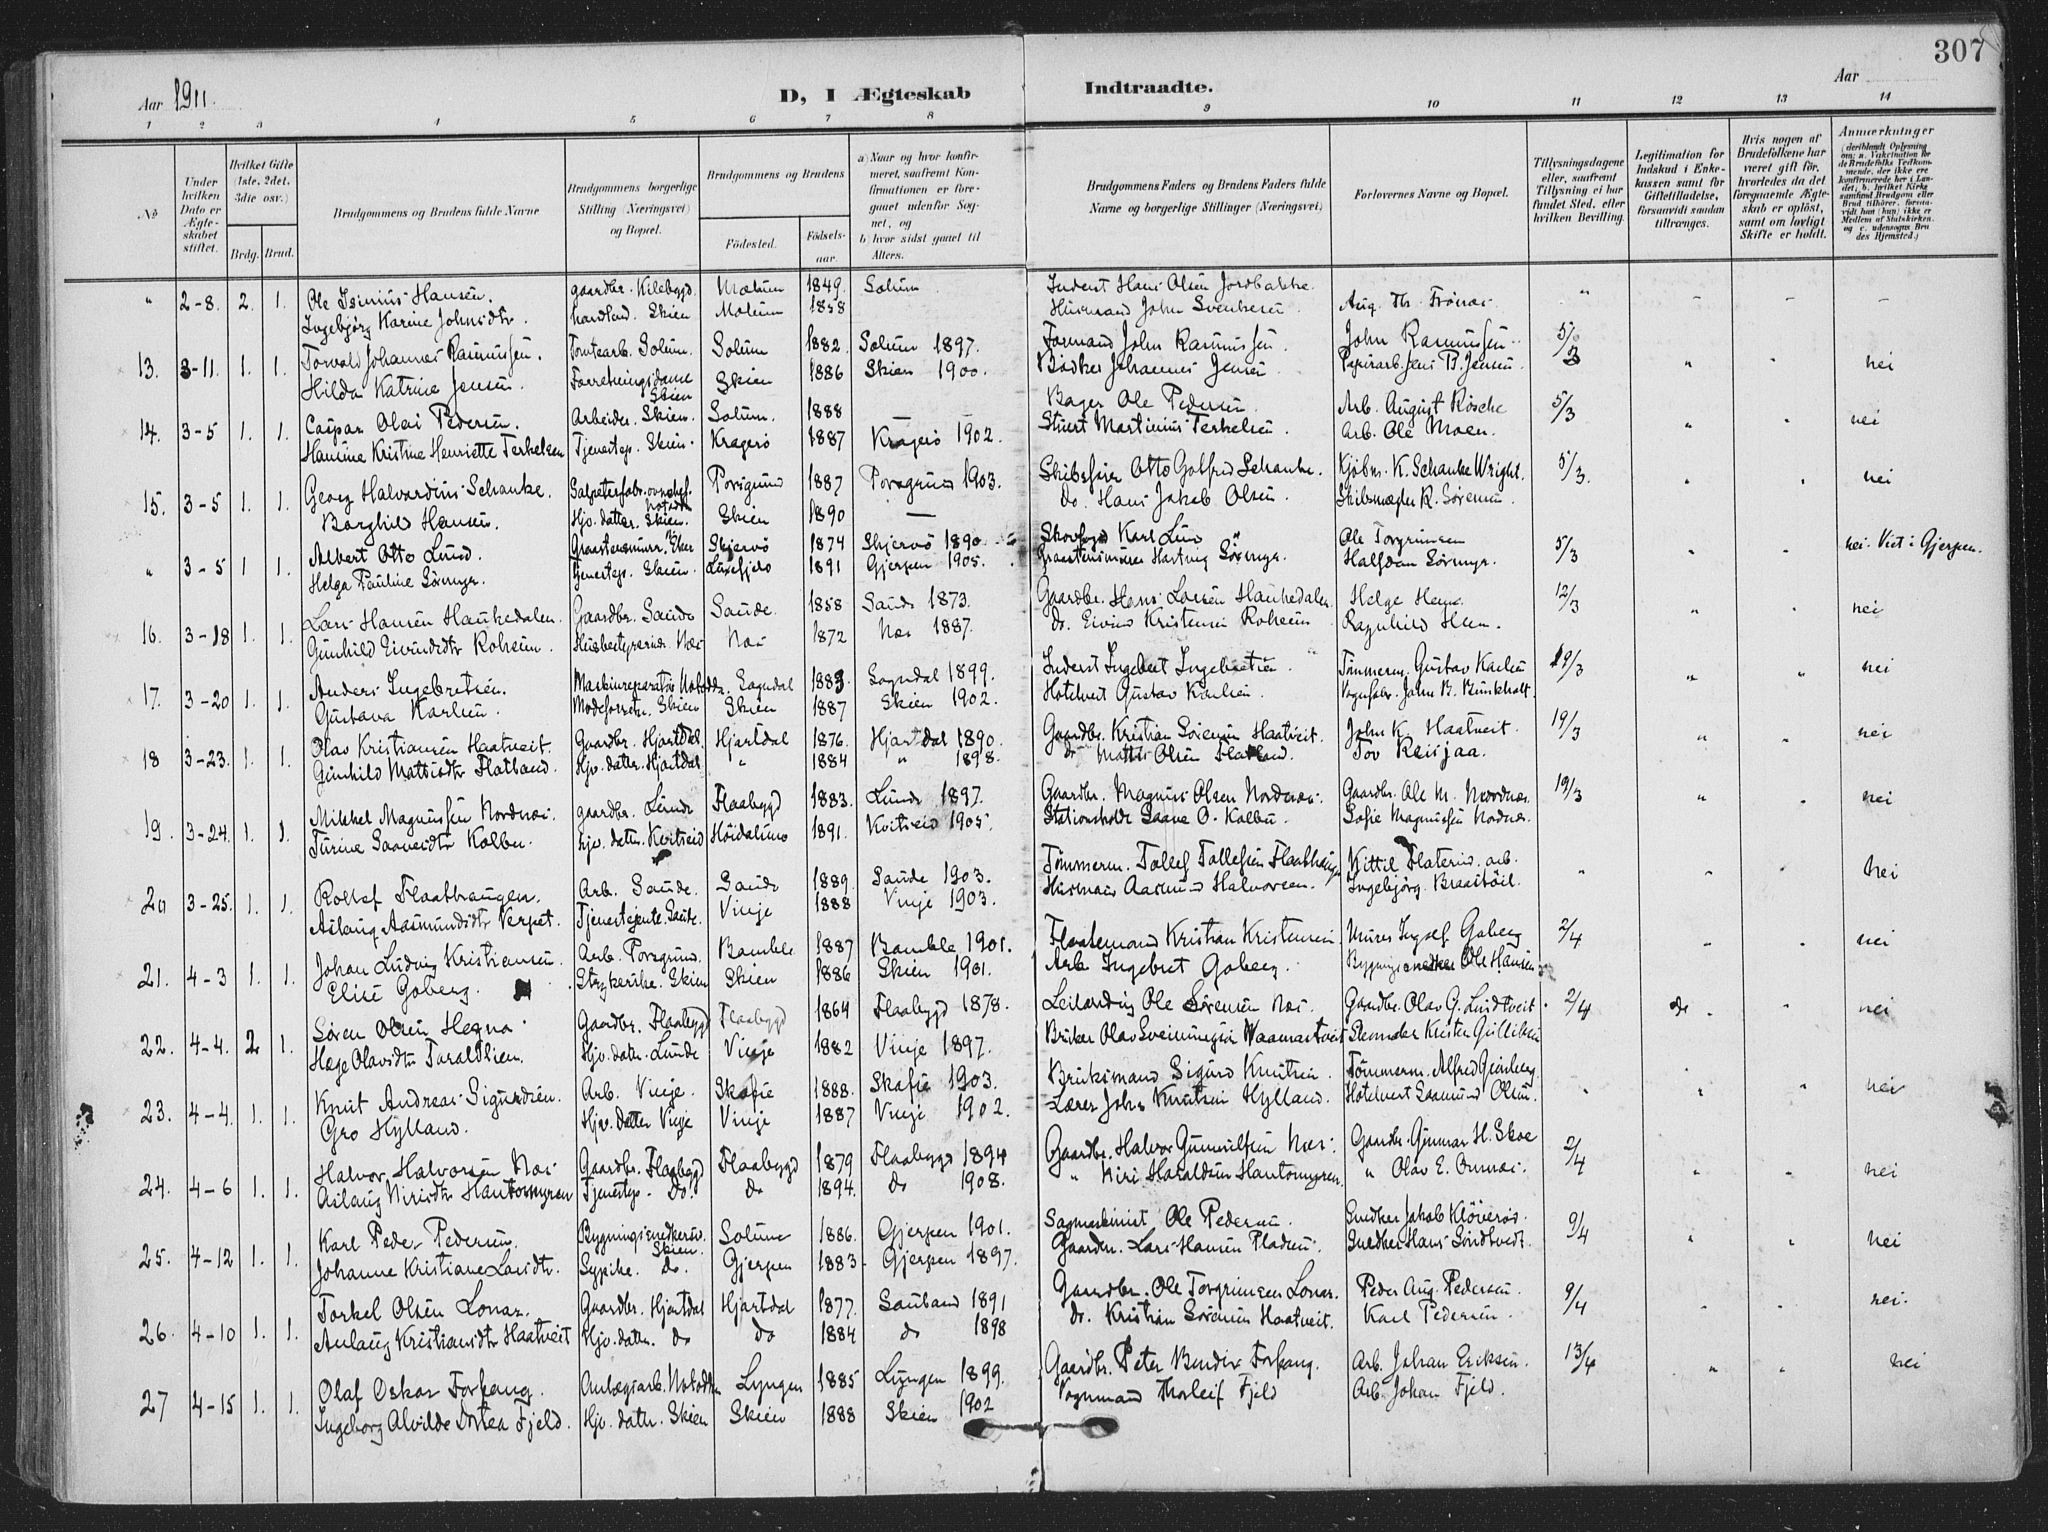 307
Aar 1911.
D, I Ægteskab Indtraadte.
Aar
1 2 3 4 5 6 7 8 9 10 11 12 13 14
No
Under hvilken Dato er Ægteskabet stiftet.
Hvilket Gifte (1ste, 2det, 3die osv.)
Brdg. Brud.
Brudgommens og Brudens fulde Navne
Brudgommens borgerlige Stilling (Næringsvei) og Bopæl.
Brudgommens og Brudens
Fødested. Fødsels-aar.
a) Naar og hvor konfirmeret, saafremt Konfirmationen er foregaaet udenfor Sognet, og
b) hvor sidst gaaet til Alters.
Brudgommens Faders og Brudens Faders fulde Navne og borgerlige Stillinger (Næringsvei)
Forlovernes Navne og Bopæl.
Tillysningsdagene eller, saafremt Tillysning ei har fundet Sted, efter hvilken Bevilling.
Legitimation for Indskud i Enkekassen samt for Giftetilladelse, forsaavidt saadan tiltrænges.
Hvis nogen af Brudefolkene har været gift før, hvorledes da det foregaaende Ægteskab er opløst, samt om lovligt Skifte er holdt.
Anmærkninger
" 2-8. 2. 1. Ole Isinius Hansen. gaardbr. Kilebygd Mælum 1849. Solum Inderst Hans Olsen Jordbakke Aug. Th. Frönæs " - - -
Ingebjörg Karine Johnsdtr. Skien Mælum 1858 Husmand John Svenkesen
13. 3-11. 1. 1. Torvald Johannes Rasmussen. Tomtearb. Solum. Solum 1882. Solum 1897. Formand John Rasmussen. John Rasmussen 5/3 " " nei
Hilda Katrine Jensen. Forretningsdame Skien Skien 1886 Skien 1900. Bödker Johannes Jensen Papirarb. Jens B. Jensen
14. 3-5 1. 1. Caspar Olai Pedersen. Arbeider. Skien. Solum. 1888 — — Bager Ole Pedersen Arb. August Rösche 5/3 " " nei
Hansine Kristine Henriette Terkelsen Tjenestep. Skien Kragerö 1887 Kragerö 1902. Stuert Martinius Terkelsen. Arb. Ole Moen.
15. 3-5 1. 1. Georg Halvardius Schanke. Salpeterfabr. Notodden Porsgrund 1887 Porsgrund 1903. Skibsförer Otto Gotfred Schanke. Kjöbm. K. Schanke Wright. 5/3. " " nei
Borghild Hansen. Hjv. datter. Skien. Skien 1890 — do. Hans Jakob Olsen Skibsmægler R. Sörensen
" 3-5 1 1. Albert Otto Lund. Graastensmurer Skjervö 1874 Skjervö 1890 Skovfogd Karl Lund Ole Torgrimsen 5/3 " " nei. Viet i Gjerpen.
Helga Pauline Sörmyr. Tjenestep. Skien. 1891 Gjerpen 1905. Graastensmurer Hartvig Sörmyr. Halfdan Sörmyr.
16. 3-18 1. 1. Lars Hansen Haukedalen. Gaardbr. Saude Saude. 1858 Saude 1873. Gaardbr. Hans Larsen Haukedalen Helge Hem. 12/3 " " nei
Gunhild Eivindsdtr Roheim. Husbestyrerinde Næs Næs 1872 Næs 1887. do. Eivind Kristensen Roheim Ragnhild Hem.
17. 3-20 1. 1. Anders Ingebretsen. Maskinreparatör Notodden. Sogndal 1883 Sogndal 1899. Inderst Ingebret Ingebretsen Tömmerm. Gustav Karlsen 19/3 " " nei
Gustava Karlsen. Modeforretn. Skien Skien 1887 Skien 1902. Hotelvert Gustav Karlsen. Vognfabr. John B. Burkholt.
18 3-23. 1. 1. Olav Kristiansen Haatveit. Gaardbr. Hjartdal. Hjartdal 1876. Hjartdal 1890. Gaardbr. Kristian Sörensen Haatveit. John K. Haatveit. 19/3 " " nei
Gunhild Mattisdtr Flatland. Hjv. datter. Hjartdal " 1884 " 1898. do Mattis Olsen Flatland. Tov Reisjaa.
19. 3-24. 1. 1. Mikkel Magnussen Nordnæs. gaardbr. Lunde Flaabygd 1883. Lunde 1897. Gaardbr. Magnus Olsen Nordnæs. Gaardbr. Ole M. Nordnæs. 19/3 " " nei
Turine Saaveidtr Kolbu. hjv. datter. Kvitseid Höidalsmo 1891. Kvitseid 1905. Stationsholder Saave O. Kolbu. Sofie Magnussen Nordnæs.
20 3-25. 1. 1. Rollef Flaathaugen. Arb. Saude. Saude 1889. Saude 1903. Tömmerm. Tollef Tollefsen Flaathaugen Kittil Flaterud. arb. " " " nei
Aslaug Aasmundsdtr Verpet. Tjenestejente. Saude. Vinje 1888 Vinje 1903. Husmand Aasmund Halvorsen. Ingebjörg Braatöit.
21. 4-3 1. 1. Johan Ludvig Kristiansen. Arb. Porsgrund. Bamble 1887 Bamble 1901. Flaatemand Kristian Kristensen Murer Goberg 2/4 " " nei
Elise Goberg. Strykerske. Skien Skien 1886 Skien 1901. Arb. Ingebret Goberg. Bygningssnedker Ole Hansen
22. 4-4. 2 1. Sören Olsen Hegna. Gaardbr. Flaabygd Flaabygd 1864 Flaabygd 1878. Leilænding Ole Sörensen Næs. Gaardbr. Olav G. Lundtveit. 2/4 do " " nei
Hæge Olavsdtr Taraldlien. Hjv. datter. Lunde Vinje 1882 Vinje 1897. Bruker Olav Sveinungsen Vaamartveit Kristen Gulliksen
23. 4-4. 1. 1. Knut Andreas Sigurdsen. Arb. Vinje. Skafse 1888. Skafse 1903. Bruksmand Sigurd Knutsen. Tömmerm. Alfred Ginberg. " " " nei
Gro Hylland. Hjv. datter Vinje Vinje 1887 Vinje 1902. Lærer John Knutsen Hylland. Hotelvert Saamund Olsen.
24. 4-6 1. 1. Halvor Halvorsen Næs. Gaardbr. Flaabygd Flaabygd 1879 Flaabygd 1894 Gaardbr. Halvor Gunnulfsen Næs. Gaardbr. Gunnar H. Skoe 2/4 " " nei
Aslaug Nirisdtr Hantomyren Tjenestep. Do. do 1894. do 1908. " Niri Haraldsen Hantomyren. " Olav E. Omnæs.
25. 4-12 1. 1. Karl Peder Pedersen. Bygningssnedker Skien. Solum 1886. Gjerpen 1901. Sagmaskinist Ole Pedersen. Snedker Jakob Klöverød. 9/4 " " nei
Johanne Kristiane Larsdtr. Sypike. do. Gjerpen 1883. Gjerpen 1897. Gaardbr. Lars Hansen Pladsen. Snedker Hans Sundtvedt.
26. 4-10 1. 1. Torkel Olsen Lonar. Gaardbr. Hjartdal Hjartdal 1877. Sauland 1891 Gaardbr. Ole Torgrimsen Lonar. Peder Aug. Pedersen. 9/4 " " nei.
Aslaug Kristiansdtr Haatveit Hjv. datter. do do 1884 do 1898 do. Kristian Sörensen Haatveit. Karl Pedersen.
27 4-15 1. 1. Olaf Oskar Forfang. Anlægsarb. Notodden Lyngen 1885 Lyngen 1899. Gaardbr. Peter Bendix Forfang. Arb. Johan Eriksen. 13/4 " " nei
Ingeborg Alvilde Dortea Fjeld. Hjv. datter. Skien Skien 1888 Skien 1902 Vognmand Thorleif Fjeld Arb. Johan Fjeld.